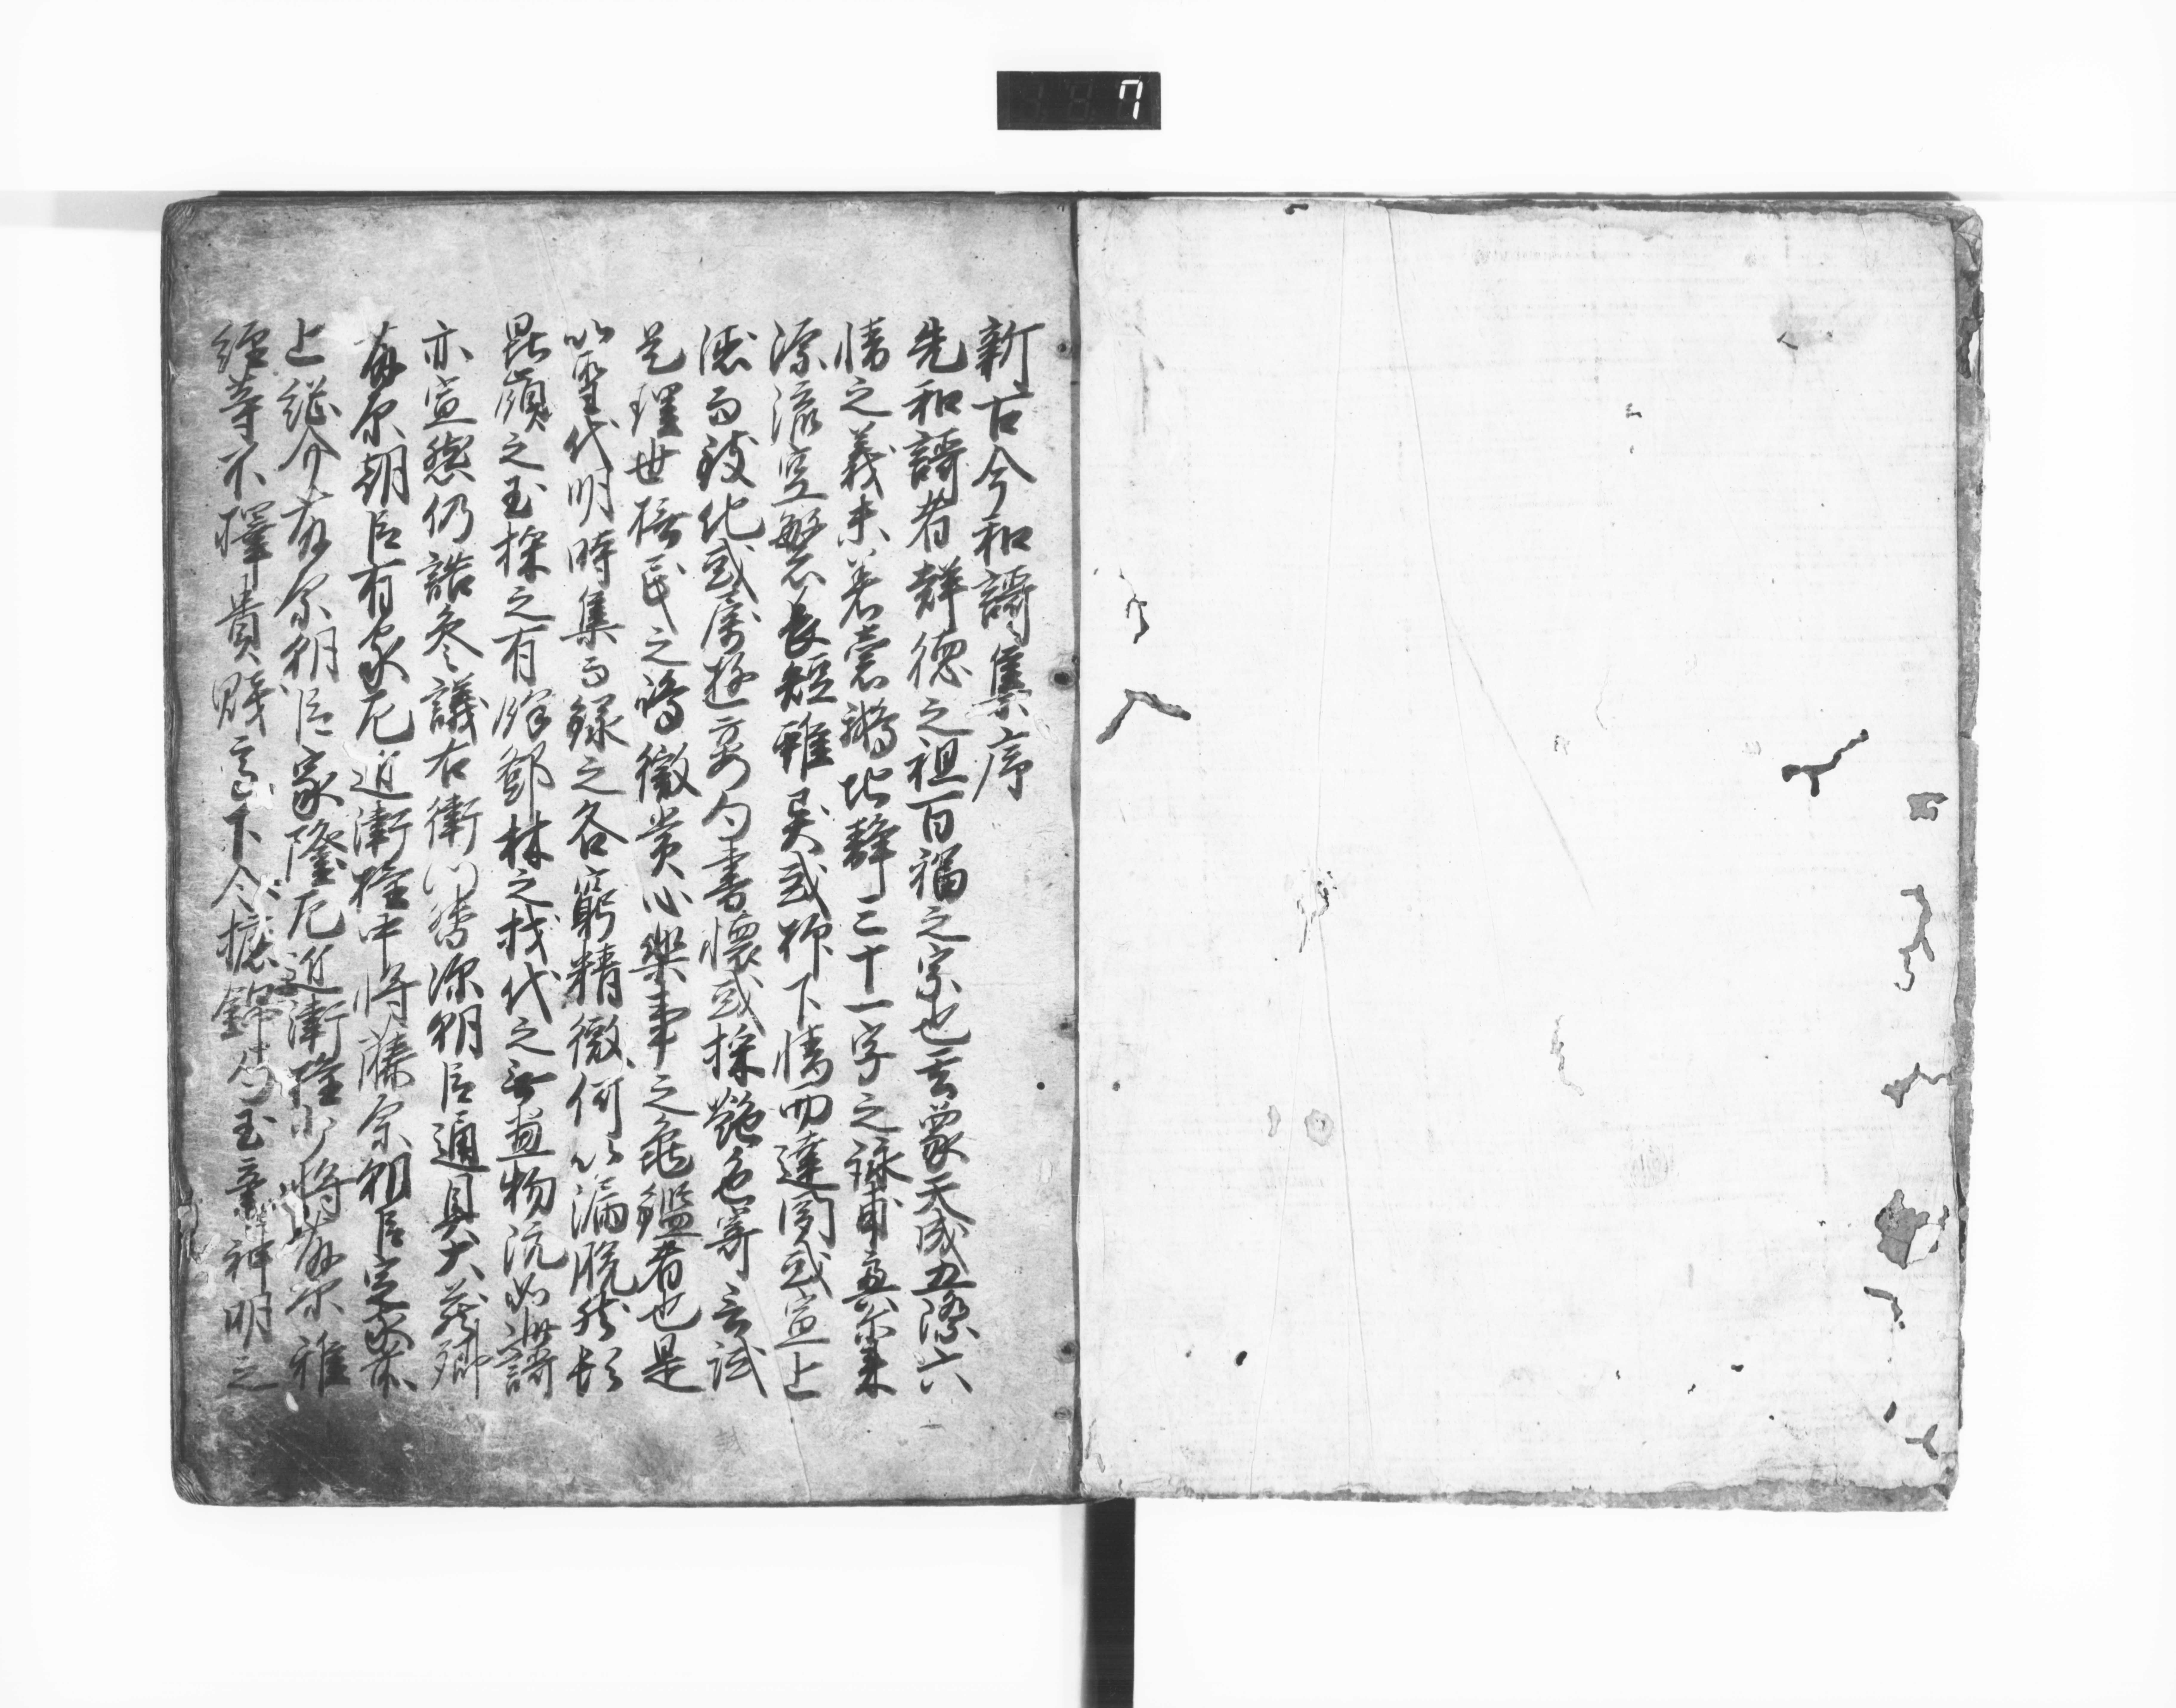 7
新古今和謌集序
先和謌者群徳之祖百福之宗也玄象天成五際六
情之義未著素鵞地静三十一字之詠甫興尓来
源流寔繁長短雖異或抒下情而達聞或宣上
徳而致化或属遊宴而書懐或採艶色而寄言誠
是理世撫民之鴻徽賞心樂事之亀鑑者也是
以聖代明時集而録之各窮精微何以漏脱然猶
崑嶺之玉採之有餘鄧林之材伐之無盡物既如此謌
亦宜然仍詔参議右衛門督源朝臣通具大蔵卿
藤原朝臣有家左近衛権中将藤原朝臣定家前
上総介藤原朝臣家隆左近衛権少将藤原雅
経等不擇貴賤高下令摭錦句玉章神明之